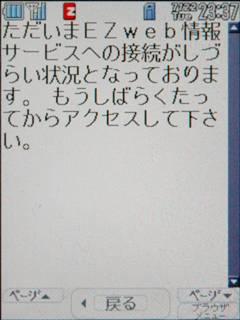 7/22 Tue 23:37
ただいまＥＺｗｅｂ情報
サービスへの接続がしづ
らい状況となっておりま
す。 もうしばらくたっ
てからアクセスして下さ
い。
ページ▲ ◀ 戻る ページ▼
ブラウザ
メニュー